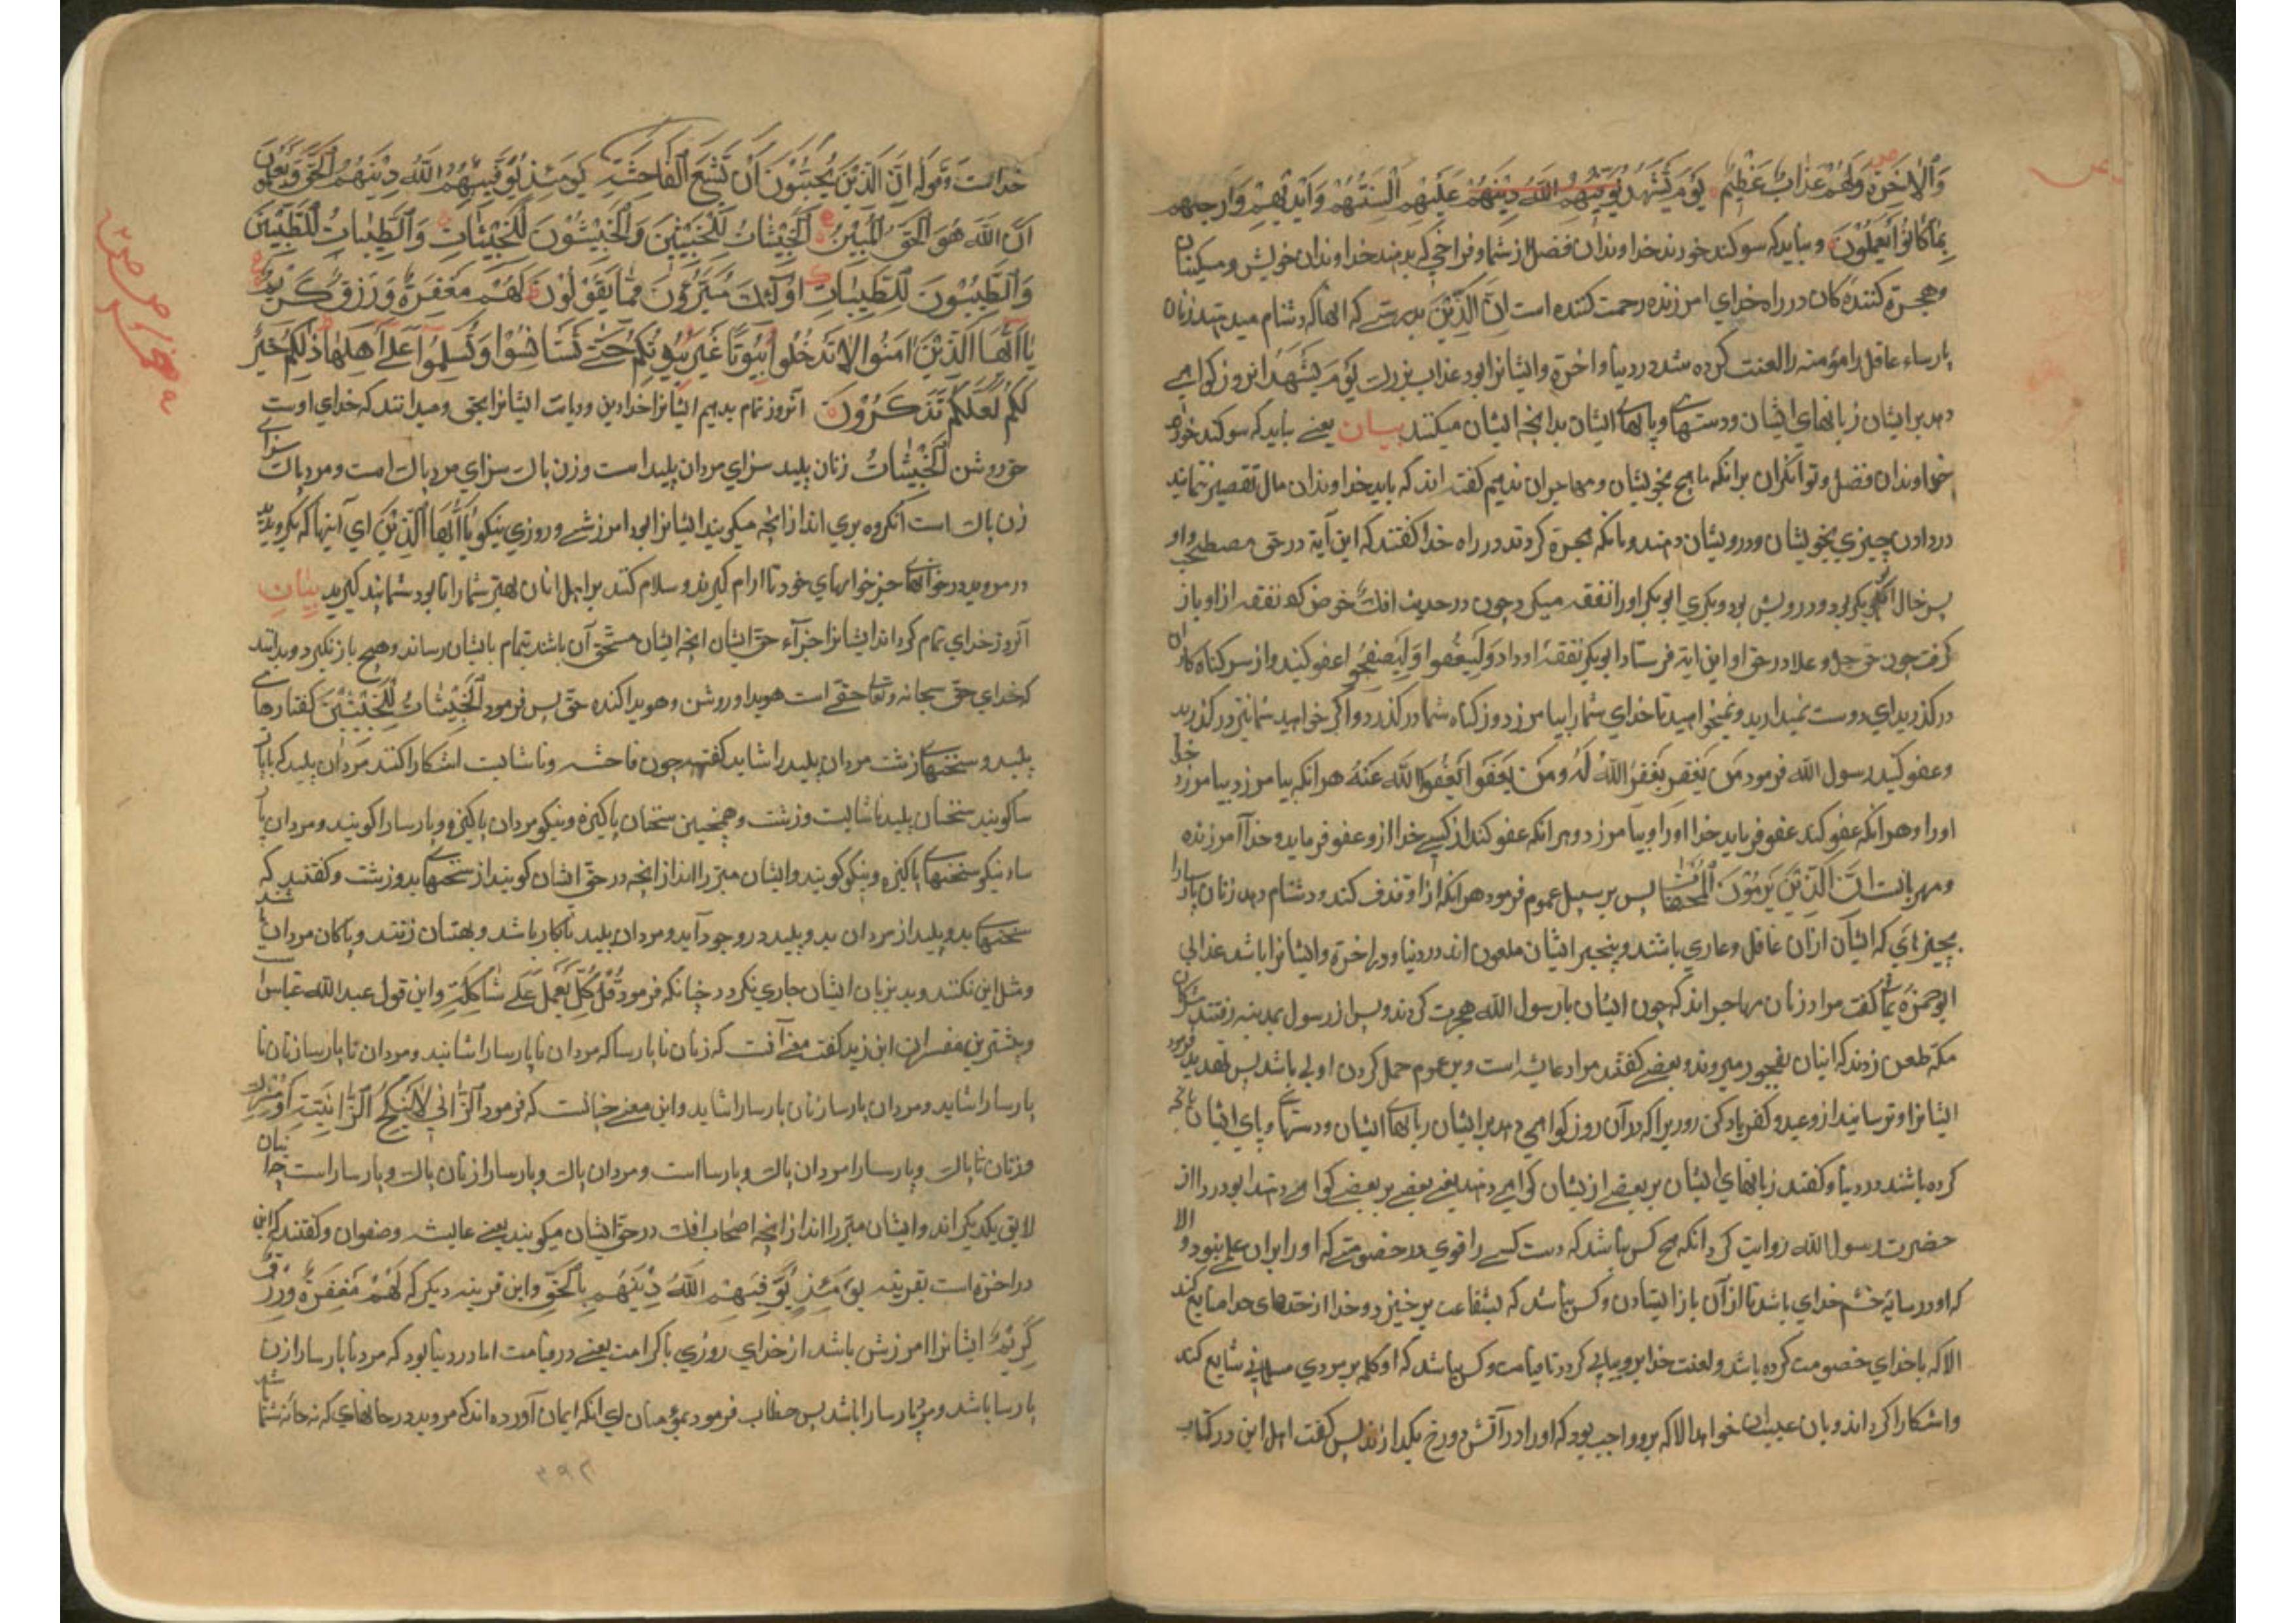 وَالْاٰخِرَةِ وَلَهُمْ عَذَابٌ عَظِيْمٌ يَوْمَ تَشْهَدُ يُوَفِّيْهِمُ اللّٰهُ دِيْنَهُمْ عَلَيْهِمْ اَلْسِنَتُهُمْ وَاَيْدِيْهِمْ وَاَرْجُلُهُمْ
بِمَا كَانُوْا يَعْمَلُوْنَ و بباید که سوکند خورند خداوندان فضل از شما و فراخی که بدهند خداوندان خویش و مسکینان
وهجرة کنندکان در راه خدای امرزنده رحمت کننده است اِنَّ الَّذِیْنَ بدرستی که انها که دشنام میدهند زنان
پارساء عاقل را مؤمنه را لعنت کرده شد در دنیا و اخرة و ایشانرا بود عذاب بزرک یَوْمَ تَشْهَدُ انروز کواهی
دهد بر ایشان زبانهای ایشان و دستهای و پایهای ایشان بدانچه ایشان میکنند بیان یعنی باید که سوکند خورد
خداوندان فضل و توانکران برانکه ما هیچ بخویشان و مهاجران ندهیم کفته اند که باید خداوندان مال تقصیر ننمایند
در دادن چیزی بخویشان و درویشان دهند و بانکه هجرة کردند در راه خدا کفتند که این آیة در حق مصطح بود و او
پسر خال ابوبکر بود و درویش بود و بکری ابوبکر اورا نفقه میکرد چون در حدیث افک خوض کرد نفقه از او باز
کرفت چون حق جل و علا در حق او این ایة فرستاد ابوبکر نفقه او داد وَلْیَعْفُوا وَلْیَصْفَحُوا عفو کنید و از سر کناه کاران
درکذرید ای دوست نمیدارید و نمیخواهید تا خدای شما را بیامرزد و از کناه شما درکذرد و اکر خواهید شما نیز درکذرید
وعفو کنید رسول الله فرمود مَن یَغْفِر یَغْفِرُ اللّٰهُ لَهُ ومَن یَعْفُوا یَعْفُو اللّٰه عَنْهُ هر انکه بیامرزد بیامرزد خدا
اورا و هر انکه عفو کند عفو فرماید خدا اورا و بیامرزد و هر انکه عفو کند از کسی خدا ازو عفو فرماید و خدا آمرزنده
و مهربانست اِنَّ الَّذِیْنَ یَرْمُوْنَ الْمُحْصَنٰاتِ پس بر سبیل عموم فرمود هر انکه ازا و قذف کند و دشنام دهد زنان پارسا را
بچیزهای که ایشان ازان غافل و عاری باشند و بیخبر ایشان ملعون اند در دنیا و در اخرة و ایشانرا باشد عذابی
ابوحمزة کفت مراد زنان مهاجر اند که چون ایشان با رسول الله هجرت کردند و پس از رسول بمدینه رفتند مشرکان
مکه طعن زدند که اینان بفجور میروند و بعضی کفتند مراد عایشه است و بر عموم حمل کردن اولی باشد پس تهدید فرمود
ایشانرا و ترسانید از وعید و کفر یاد کن روریرا که دران روز کواهی دهد بر ایشان زبانهای ایشان و دستهای و پای ایشان بانچه
کرده باشند در دنیا و کفتند زبانهای ایشان بر بعضی از یشان کواهی دهند یعنی بعضی بر بعضی کواهی دهند ابو دردا از
حضرت رسول الله روایت کرد انکه هیچ کس نباشد که دست کسی را قوی در خصومتی که اورا بران علم نبود والا
که او در سایه خشم خدای باشد تا از آن باز ایستادن و کس نباشد که بشفاعت بر خیزد و خدا از حدهای خدا ضایع کند
الا که با خدای خصومت کرده باشد و لعنت خدا برو بیاپی کردد تا قیامت و کس نباشد که او کلمه بر مردی مسلمانی شایع کند
و اشکارا کرداند و بان عیب ان خواهد الا که برو واجب بود که اورا در آتش دوزخ بکدازند پس کفت اصل این در کتاب
خداست وَقَولُه اِنَّ الَّذِيْنَ يُحِبُّوْنَ اَنْ تَشِيْعَ الْفَاحِشَةُ يَوْمَئِذٍ يُوَفِّيْهِمُ اللّٰهُ دِيْنَهُمُ الْحَقَّ وَيَعْلَمُوْنَ
اَنَّ اللّٰهَ هُوَ الْحَقُّ الْمُبِيْنُ اَلْخَبِيْثَاتُ لِلْخَبِيْثِيْنَ وَالْخَبِيْثُوْنَ لِلْخَبِيْثَاتِ وَالطَّيِّبَاتُ لِلطَّيِّبِيْنَ
وَالطَّيِّبُوْنَ لِلطَّيِّبَاتِ اُولٰئِكَ مُبَرَّءُوْنَ مِمَّا يَقُوْلُوْنَ لَهُمْ مَغْفِرَةٌ وَرِزْقٌ كَرِيْمٌ
يَا اَيُّهَا الَّذِيْنَ اٰمَنُوْا لَا تَدْخُلُوْا بُيُوْتًا غَيْرَ بُيُوْتِكُمْ حَتّٰى تَسْتَانِسُوْا وَتُسَلِّمُوْا عَلٰى اَهْلِهَا ذٰلِكُمْ خَيْرٌ
لَكُمْ لَعَلَّكُمْ تَذَكَّرُوْنَ انروز تمام بدهیم ایشانرا خدا دین و دیانت ایشانرا بحق و میدانند که خدای اوست
حق روشن اَلْخَبِیْثَاتُ زنان پلید سزای مردان پلید است و زن پاک سزای مرد پاک است و مرد پاک سزای
زن پاک است انکروه بری اند از انچه میکویند ایشانرا بود امرزشی و روزی نیکو یَا اَیُّهَا الَّذِیْنَ ای آینها که بکرویدید
در مروید در خانهای جز خوانهای خود تا ارام کیرید و سلام کنید بر اهل انان بهتر شما را تا بود شما پند کیرید بیان
آنروز خدای تمام کرداند ایشانرا جزآء حق ایشان انچه ایشان مستحق آن باشند بتمام بایشان رساند و هیچ باز نکیرد و بدانند
که خدای حق سبحانه و تعالی حقی است هویدا و روشن و هویدا کننده حق پس فرمود اَلْخَبِیْثَاتُ لِلْخَبِیْثِیْنَ کفتارهای
پلید و سخنهای زشت مردان پلید را شاید کفتن چون فاحشه و ناشایست اشکارا کنند مردان پلید که ناپار
سا کویند سخنان پلید ناشایست و زشت و همچنین سخنان پاکیزه و نیکو مردان پاکیزه و پارسا را کویند و مردان پار
سا و نیکو سخنهای پاکیزه و نیکو کویند و ایشان مبرّااند از انچه در حق ایشان کویند از سخنهای بد و زشت و کفتند که
سخنهای بد و پلید از مردان بد و پلید در وجود آید و مردان پلید ناکار باشد و بهتان زنند و پاکان مردان
و مثل این نکنند و بد بزبان ایشان جاری نکردد چنانکه فرمود قُلْ كُلٌّ یَعْمَلُ عَلٰی شَاكِلَتِهٖ و این قول عبدالله عباس
و بیشترین مفسران ابن زید کفت معنی آنست که زنان ناپارسا که مردان ناپارسا را شایند و مردان ناپارسا زنان نا
پارسا را شاید و مردان پارسا زنان پارسا را شاید و این معنی چنانست که فرمود اَلزَّانِیْ لَا یَنْكِحُ اِلَّا زَانِیَةً اَوْ مُشْرِكَة
و زنان ناپاک و پارسا را مردان پاک و پارسا است و مردان پاک و پارسا را زنان پاک و پارسا راست
لایق یکدیکر اند و ایشان مبرّااند از انچه اصحاب افک در حق ایشان میکویند یعنی عایشه و صفوان و کفتند که این
در اخرة است بقرینه یَوْمَئِذٍ یُّوَفِّیْهِمُ اللّٰهُ دِیْنَهُمُ بِالْحَقّ و این قرینه دیکر که لَهُمْ مَغْفِرَةٌ وَرِزْقٌ
كَرِیْمٌ ایشانرا امرزش باشد از خدای روزی با کرامت یعنی در قیامت اما در دنیا بود که مرد ناپارسا را زن
پارسا باشد و مرد پارسا را باشد پس خطاب فرمود بمؤمنان ای انکه ایمان آورده اند که مروید در خانهای که نه خانه شما
۳۹۳